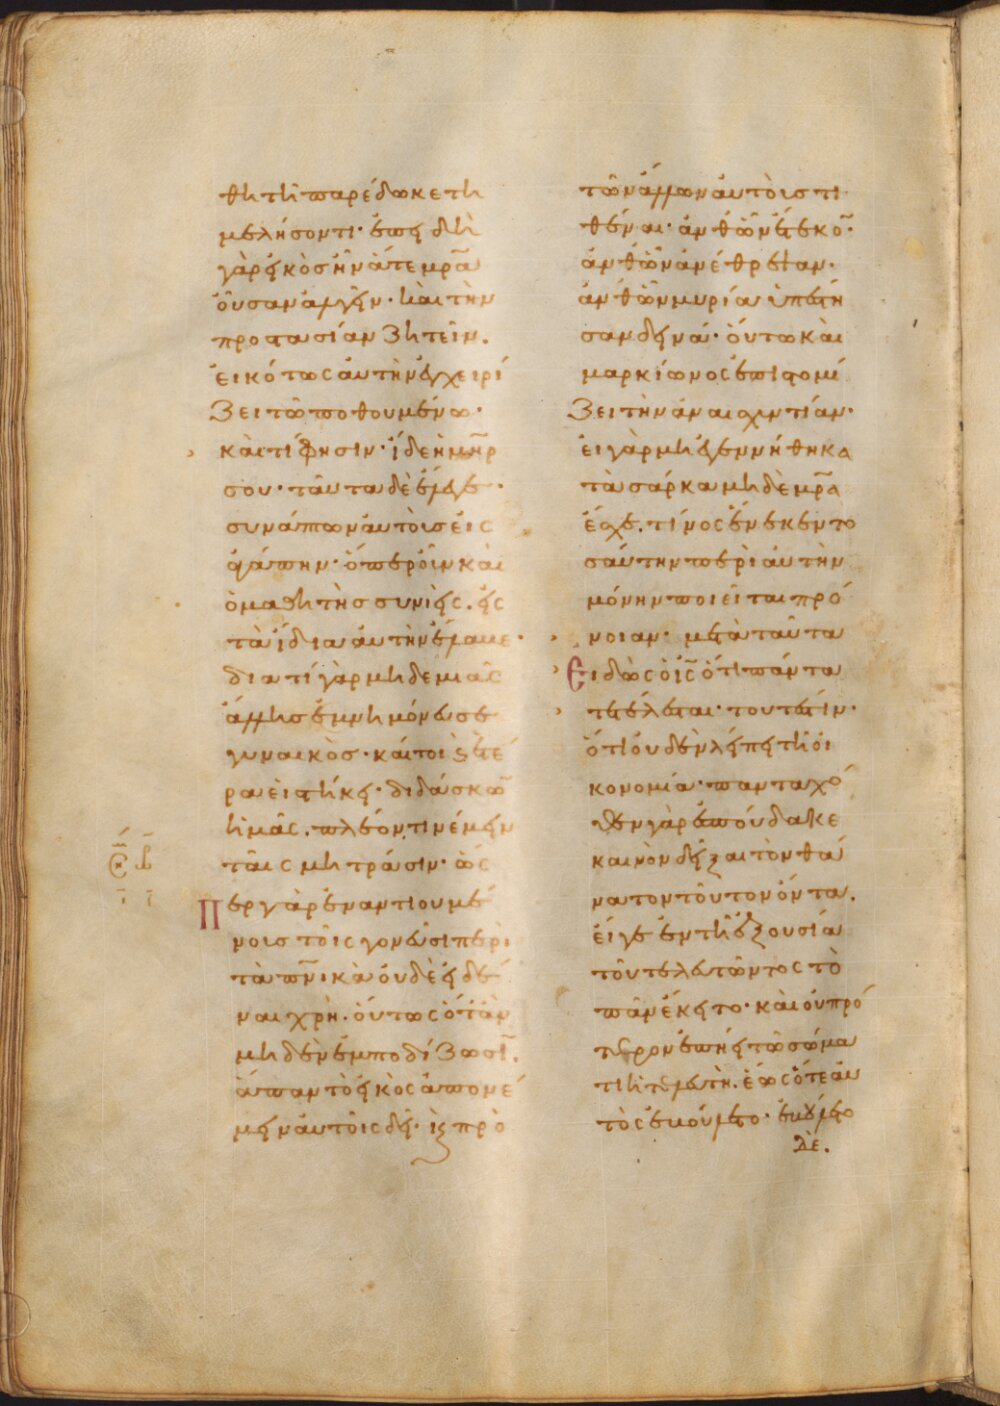 θητῆ παρέδωκε τῆ
μελήσοντι· ἐπει δὴ
γὰρ εἰκὸς ἦν ἅτε μρ̅α
οὖσαν ἀλγεῖν· καὶ τὴν
προστασίαν ζητεῖν.
εἰκότως αὐτὴν ἐγχειρί
ζει τῶ ποθουμένω·
καὶ τί φησιν· ἴδε ἡ μη̅ρ
σου· ταῦτα δὲ ἔλεγε·
συνάπτων αὐτοὺς εἰς
ἀγάπην· ὅπερ οὖν καὶ
ὁ μαθητὴς συνιεὶς. εἰς
τὰ ἴδια αὐτὴν ἔλαβε·
διατί γὰρ μηδεμιᾶς
ἄλλης ἐμνημόνευσε
γυναικὸς· καίτοι γε ἑτέ
ρα εἱστήκει· διδάσκω̅
ἡμᾶς. πλέον τι νέμειν
ταῖς μητράσιν· ὥς
περ γὰρ ἐναντιουμέ
νοις τοῖς γονεῦσι περὶ
τὰ πν̅ικὰ οὐδὲ εἰδέ
ναι χρὴ. οὕτως ὅταν
μηδὲν ἐμποδίζωσι̅.
ἅπαν τὸ εἰκὸς ἀπονέ
μειν αὐτοῖς δεῖ· καὶ πρὸ
τῶν ἄλλων αὐτοὺς τι
θέναι· ἀνθ ὧν ἔτεκο̅·
ἀνθ ὧν ἀνέθρεψαν·
ἀνθ ὧν μυρία ὑπέστη
σαν δεινά· οὕτω καὶ
μαρκίωνος ἐπιστομί
ζει τὴν ἀναισχυντίαν·
εἰ γὰρ μὴ ἐγεννήθη κα
τὰ σάρκα μηδὲ μρ̅α
ἔσχε. τίνος ἕνεκεν το
σαύτην περὶ αὐτὴν
μόνην ποιεῖται πρό
νοιαν· μετὰ ταῦτα
Εἰδὼς ὁ ι̅ς̅ ὅτι πάντα
τετέλεσται· τουτέστιν·
ὅτι οὐδὲν λείπει τῆ οἰ
κονομία· πανταχό
θεν γὰρ ἐσπούδακε
καινὸν δεῖξαι τὸν θά
νατον τοῦτον ὄντα.
εἴγε ἐν τῆ ἐξουσία
τοῦ τελευτῶντος τὸ
πᾶν ἔκειτο· καὶ οὐ πρό
τερον ἐπήει τῶ σώμα
τι ἡ τελευτὴ. ἕως ὅτε αὐ
τὸς ἐβούλετο· ἐβούλετο
δὲ.